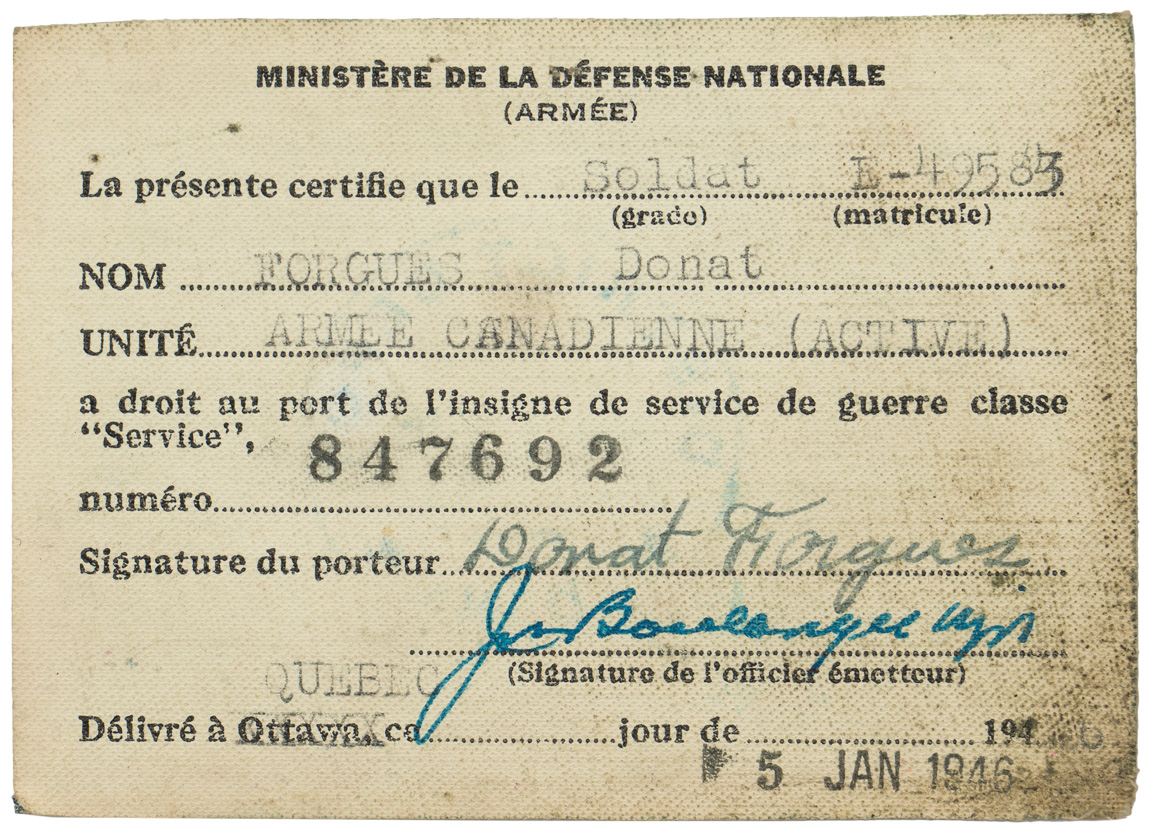 MINISTÈRE DE LA DÉFENSE NATIONALE
(ARMÉE)
La présente certifie que le Soldat E-49583
(grade) (matricule)
NOM FORGUES Donat
UNITÉ ARMEE CANADIENNE (ACTIVE)
a droit au port de l'insigne de service de guerre classe
"Service",
847692
numéro
Signature du porteur Donat Forgues
Boulanger
(Signature de l'officier émetteur)
QUEBEC
Délivré à Ottawa, ce jour de 194
5 JAN 1946